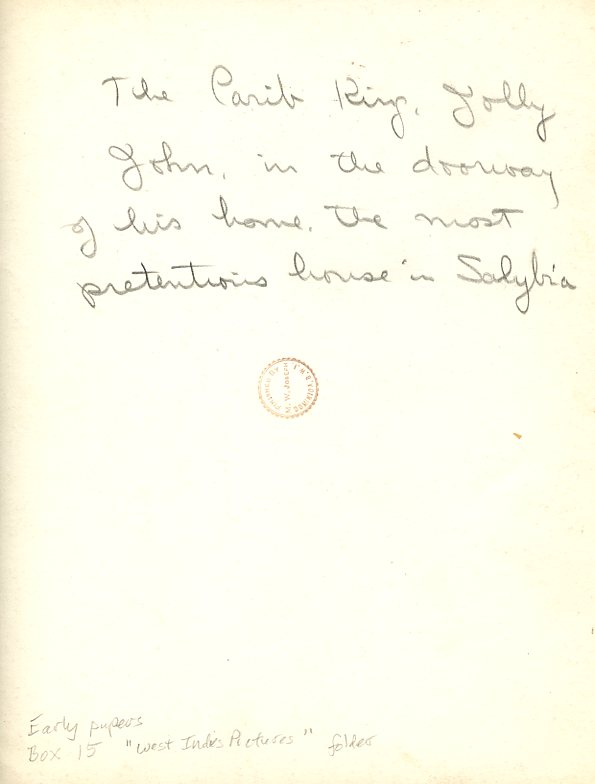 The Carib King, Jolly
John, in the doorway
of his home. The most
pretentious house in Salybia
M. W. JOSEPH
DOMINICA, B.W.I.
Early papers
Box 15 "West Indies Pictures" folder